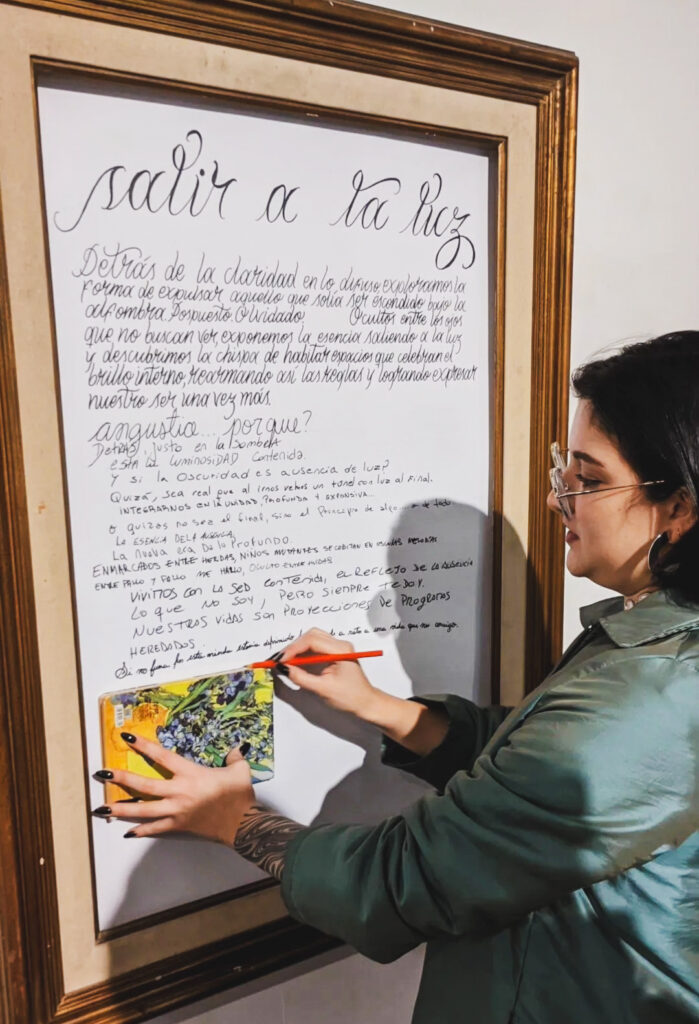 salir a la luz
Detrás de la claridad en lo difuso exploramos la
forma de expulsar aquello que solía ser escondido bajo la
alfombra. Pospuesto. Olvidado. Ocultos entre los ojos
que no buscan ver, exponemos la esencia saliendo a la luz
y descubrimos la chispa de habitar espacios que celebran el
brillo interno, rearmando así las reglas y logrando expresar
nuestro ser una vez más.
angustia... porque?
Detrás, justo en la sombra
está la luminosidad contenida.
Y si la oscuridad es ausencia de luz?
Quizá, sea real que al irnos vemos un tunel con luz al final.
INTEGRARNOS EN LA UNIDAD, PROFUNDA Y EXPANSIVA...
O quizás no sea el final, sino el Principio de algo... o de todo
LA ESENCIA DE LA AUSENCIA
La nueva era De lo Profundo.
ENMARCADOS ENTRE HORDAS, NIÑOS MUTANTES SE
ENTRE FALLO Y FALLO ME HALLO, OCULTO ENTRE
VIVIMOS CON LA SED CONTENIDA, EL REFLEJO DE LA AUSENCIA
LO QUE NO SOY, PERO SIEMPRE
NUESTRAS VIDAS SON PROYECCIONES DE PROGRAMAS
HEREDADOS.
Si no fuera por esta historia a una vida que no consigo.